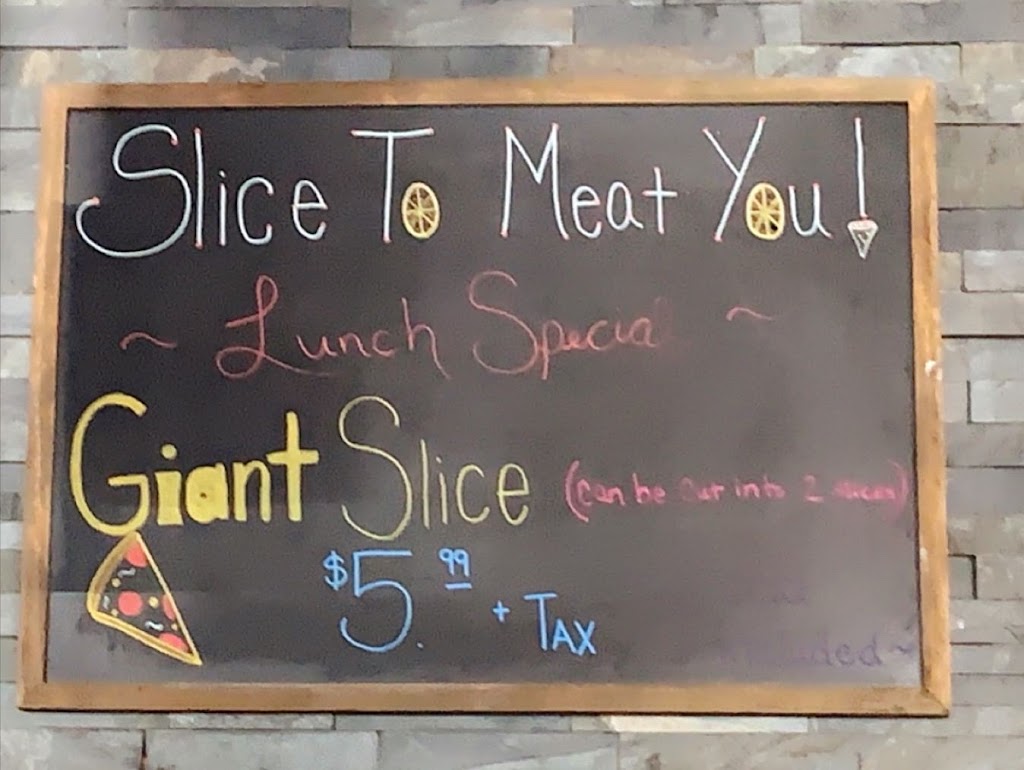 Slice To Meat You!
~ Lunch Special ~
Giant Slice (can be cut into 2 slices)
$5.99 + TAX